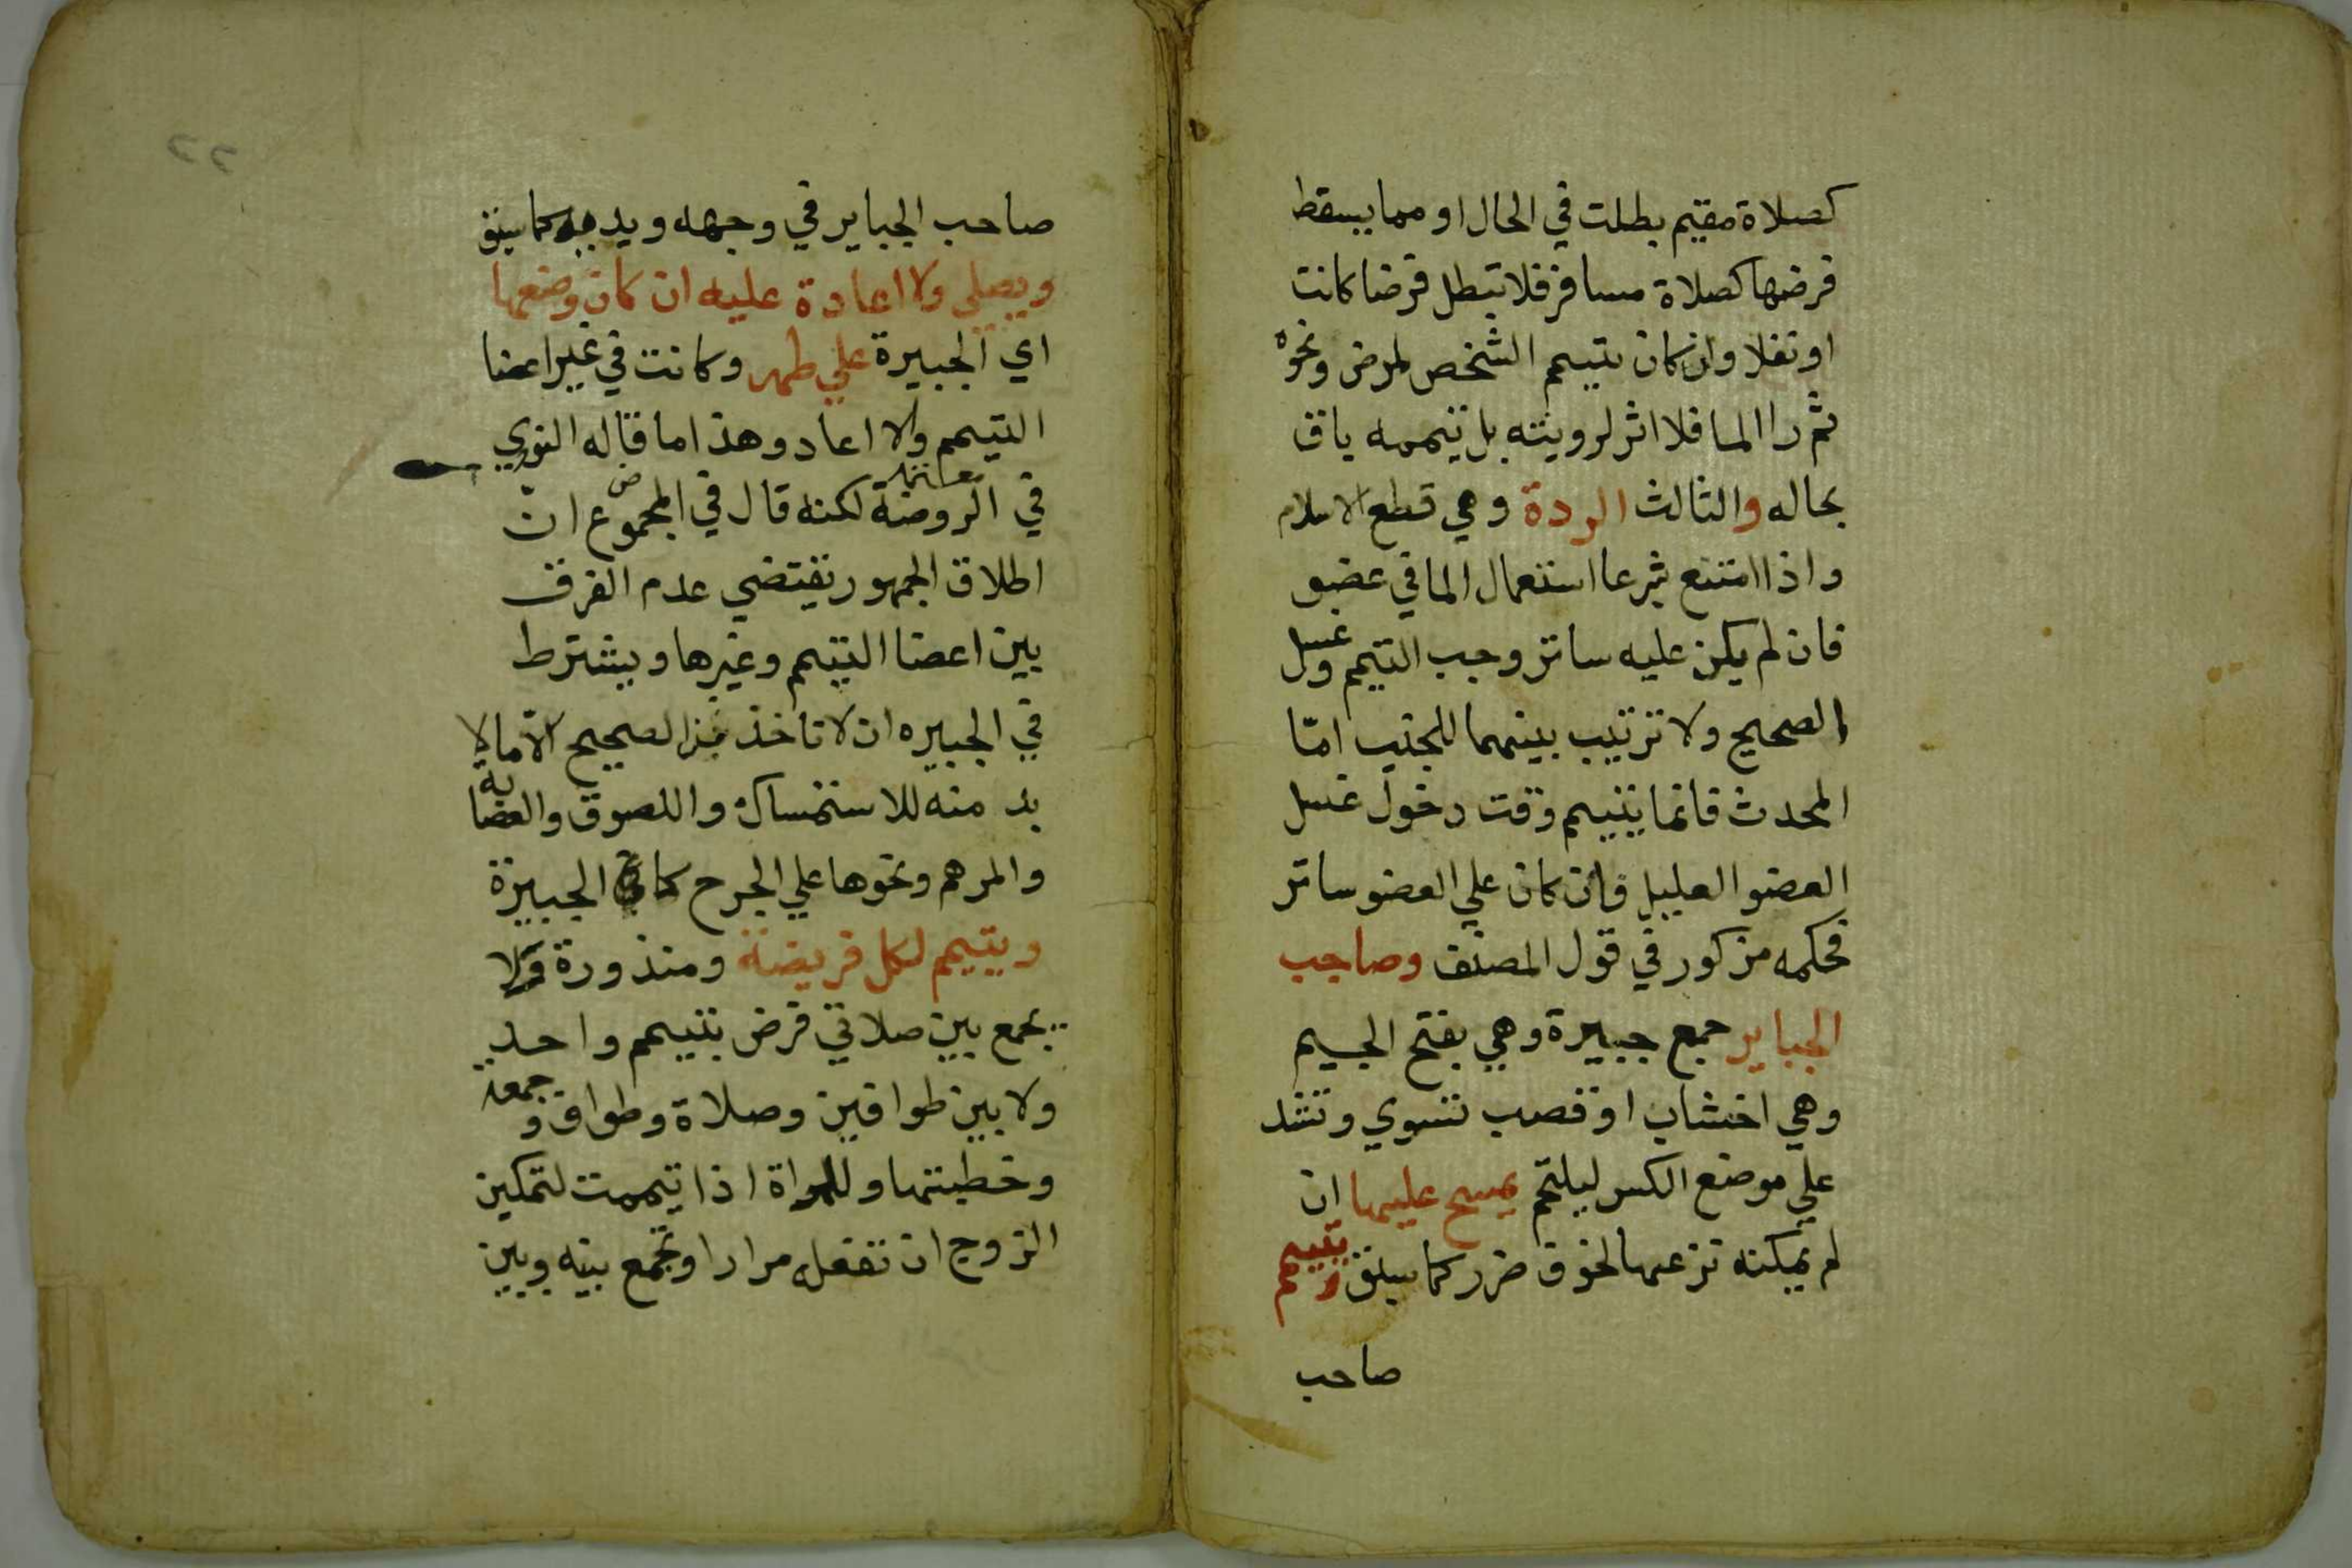 كصلاة مقيم بطلت في الحال او مما يسقط
فرضها كصلاة مسافر فلا تبطل فرضا كانت
او نفلا وان كان تيمم الشخص لمرض ونحوه
ثم را الما فلا اثر لرويته بل تيممه باق
بحاله والثالث الردة وهي قطع الاسلام
واذا امتنع شرعا استعمال الما في عضو
فان لم يكن عليه ساتر وجب التيمم وغسل
الصحيح ولا ترتيب بينهما للجنب امّا
المحدث فانما يتيمم وقت دخول غسل
العضو العليل فان كان علي العضو ساتر
فحكمه مذكور في قول المصنف وصاحب
الجباير جمع جبيرة وهي بفتح الجيم
وهي اخشاب او قصب تسوي وتشد
علي موضع الكسر ليلتحم يمسح عليها ان
لم يمكنه نزعها لخوف ضرر كما سبق ويتيمم
صاحب
٢٢
صاحب الجباير في وجهه ويديه كما سبق
ويصلي ولا اعادة عليه ان كان وضعها
اي الجبيرة علي طهر وكانت في غير اعضا
التيمم والا اعاد وهذا ما قاله النووي
في الروضة لكنه قال في المجموع ان
اطلاق الجمهور يقتضي عدم الفرق
بين اعضا التيمم وغيرها ويشترط
في الجبيره ان لا تاخذ من الصحيح الّا ما لا
بد منه للاستمساك واللصوق والعصابة
والمرهم ونحوها علي الجرح كما الجبيرة
ويتيمم لكل فريضة ومنذورة فلا
يجمع بين صلاتي فرض بتيمم واحد
ولا بين طوافين وصلاة وطواف وجمعة
وخطبتها وللمراة اذا تيممت لتمكين
الزوج ان تفعله مرارا وتجمع بينه وبين